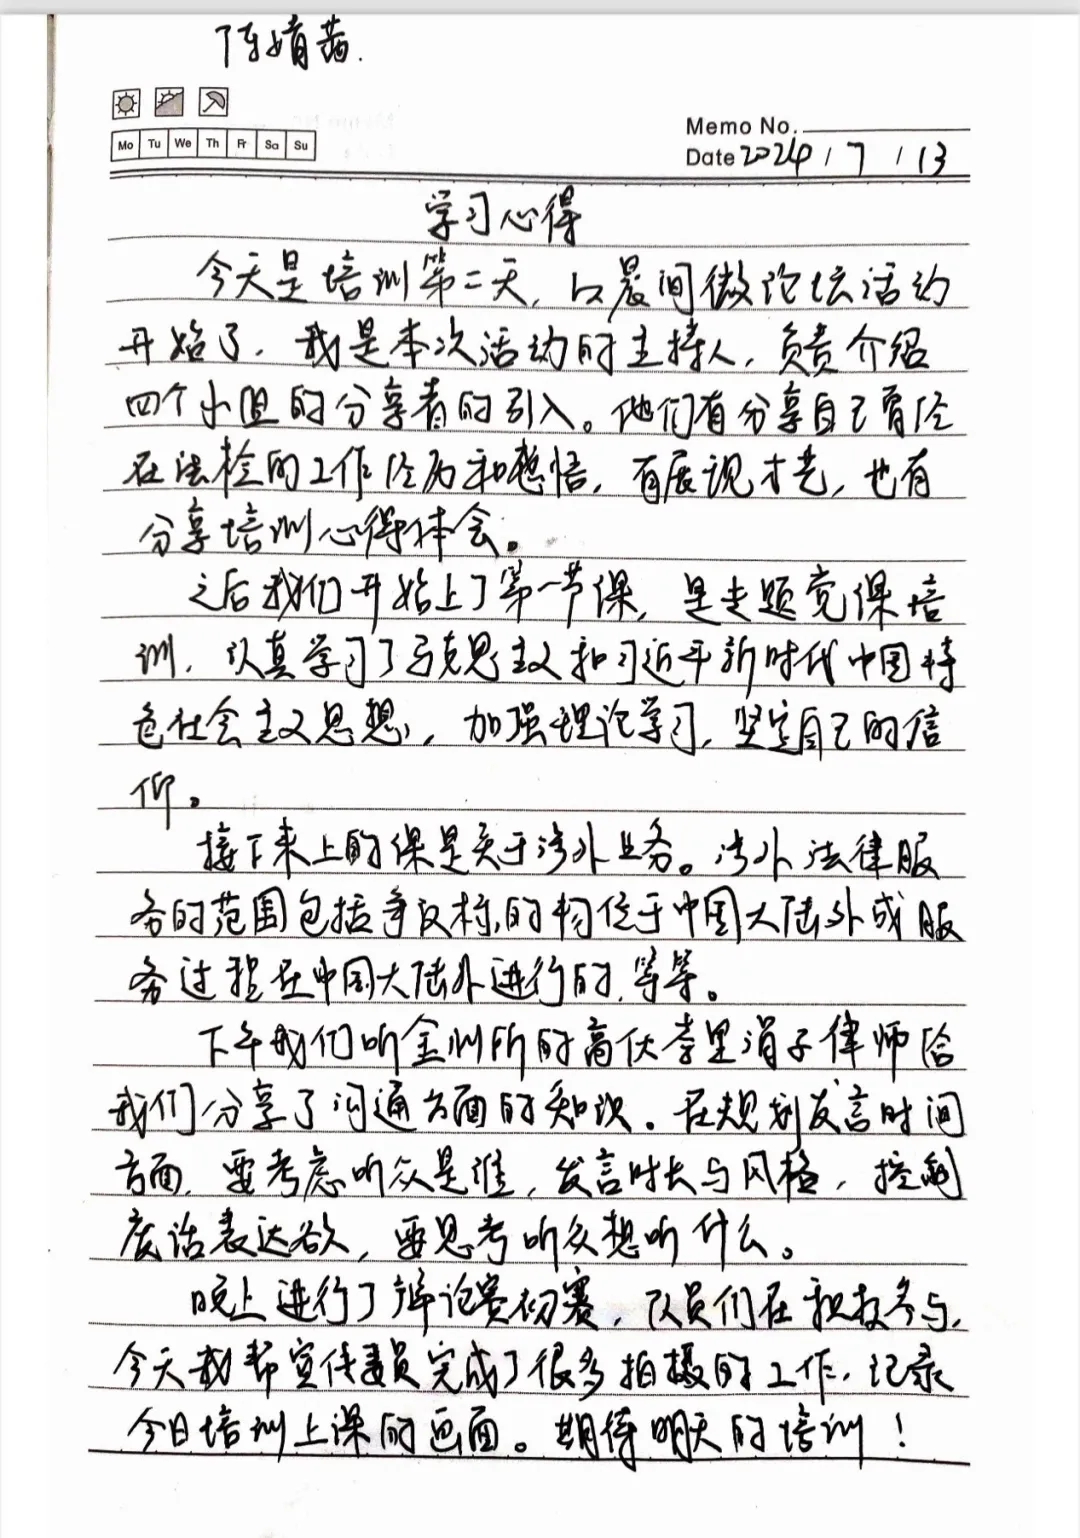 陈婧茜.
Mo Tu We Th Fr Sa Su
Memo No.
Date 2024 / 7 / 13
学习心得
今天是培训第二天,以晨间微论坛活动
开始了,我是本次活动的主持人,负责介绍
四个小组的分享者的引入。他们有分享自己曾经
在法检的工作经历和感悟,有展现才艺,也有
分享培训心得体会。
之后我们开始上了第一节课,是专题党课培
训,认真学习了马克思主义和习近平新时代中国特
色社会主义思想,加强理论学习,坚定自己的信
仰。
接下来上的课是关于涉外业务。涉外法律服
务的范围包括争议标的物位于中国大陆外或服
务过程在中国大陆外进行的,等等。
下午我们听金州所的高伙李里涓子律师给
我们分享了沟通方面的知识。在规划发言时间
方面,要考虑听众是谁,发言时长与风格,控制
废话表达欲,要思考听众想听什么。
晚上进行了辩论赛初赛,队员们在积极参与,
今天我帮宣传委员完成了很多拍摄的工作,记录
今日培训上课的画面。期待明天的培训!